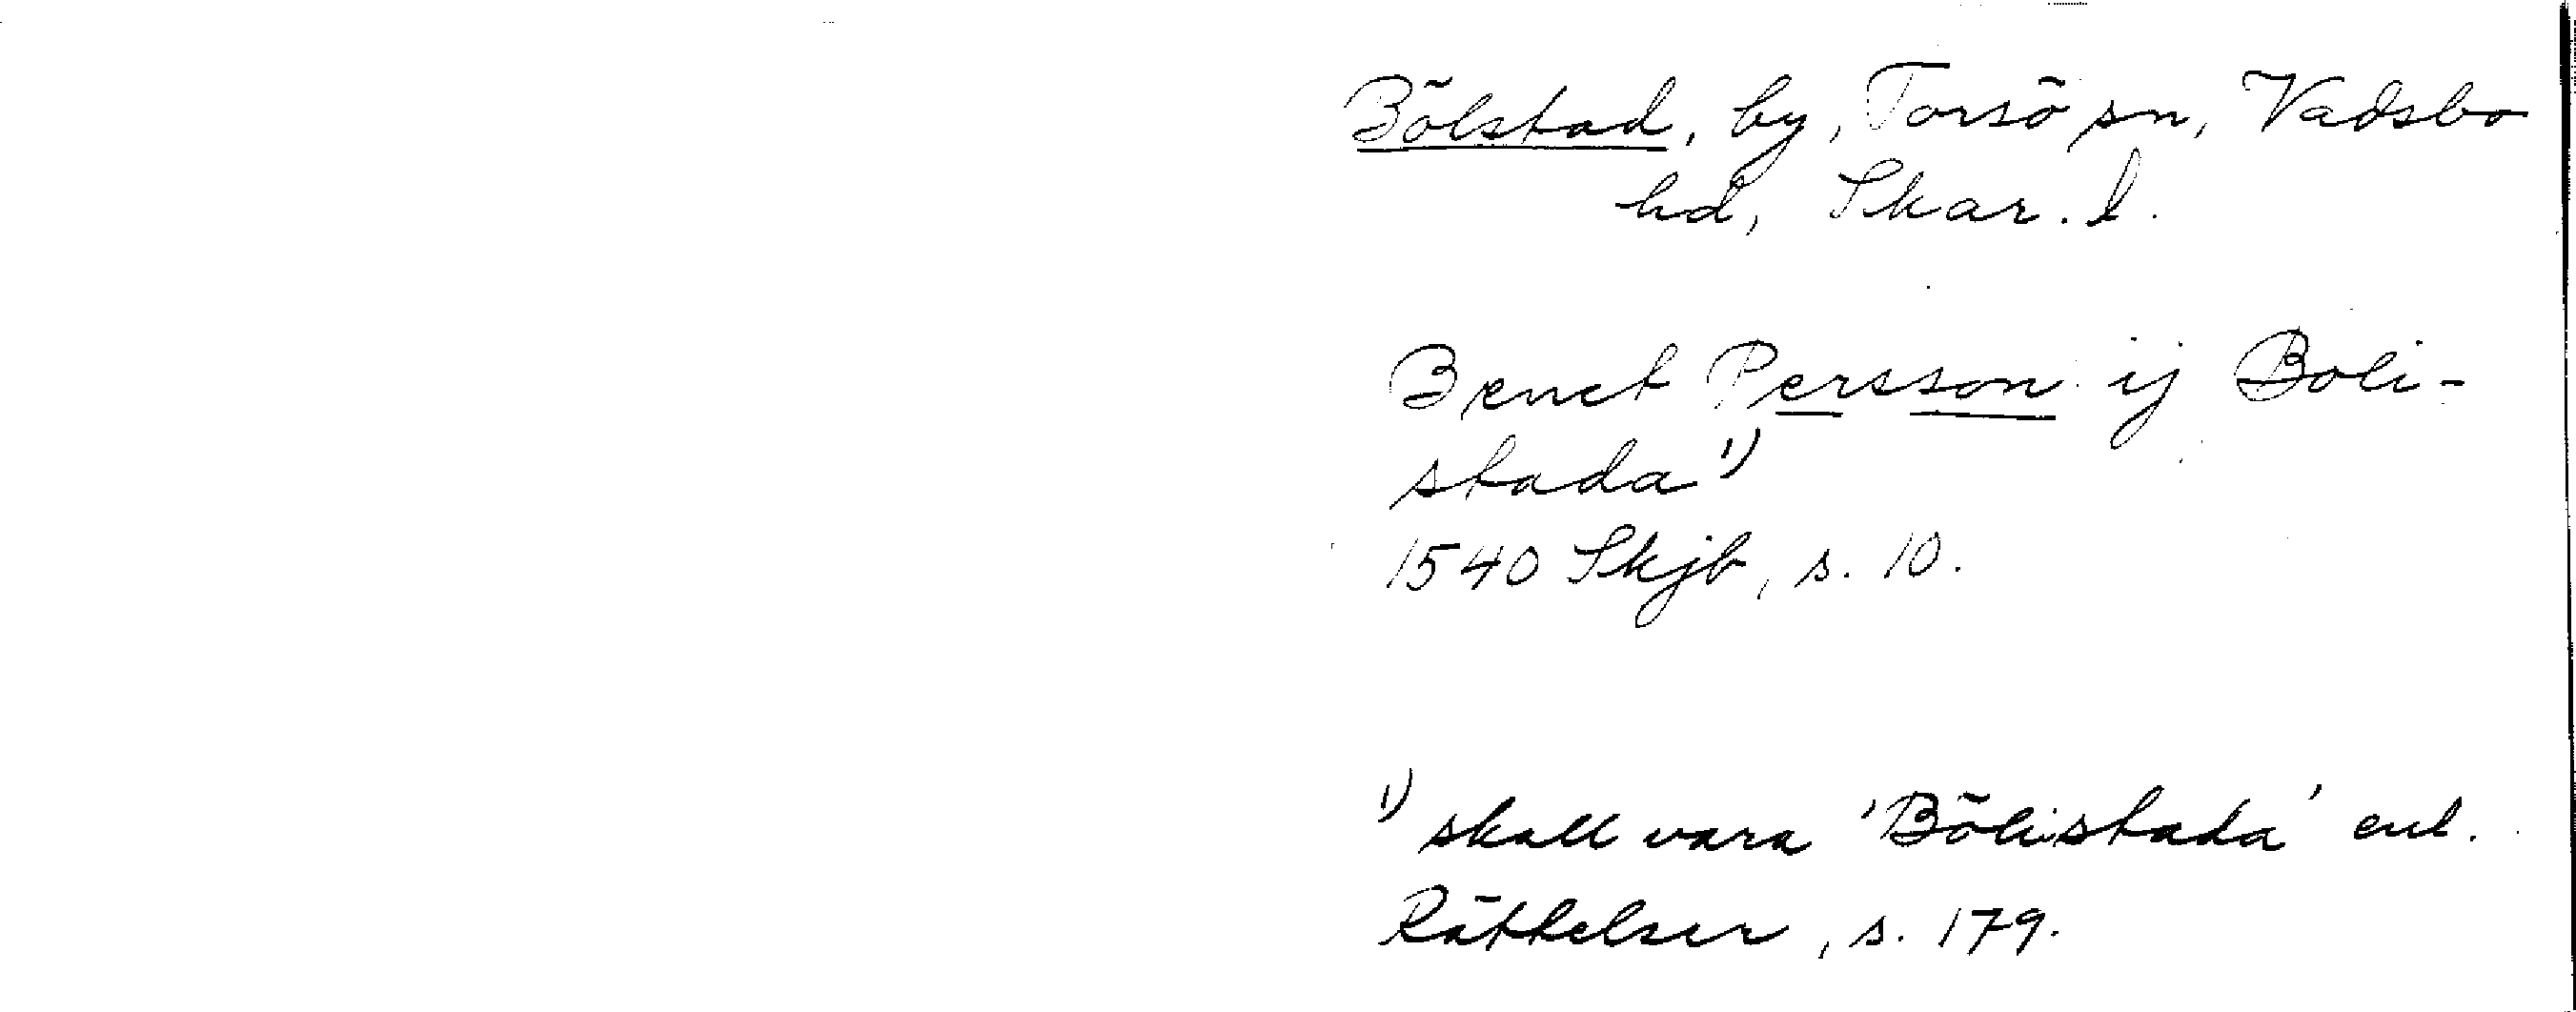 Bölstad, by, Torsö sn, Vadsbo
hd, Skar. l.
Benct Persson ij Boli-
stada 1)
1540 Skjb, s. 10.
1) skall vara 'Bölistada' enl.
Rättelser, s. 179.